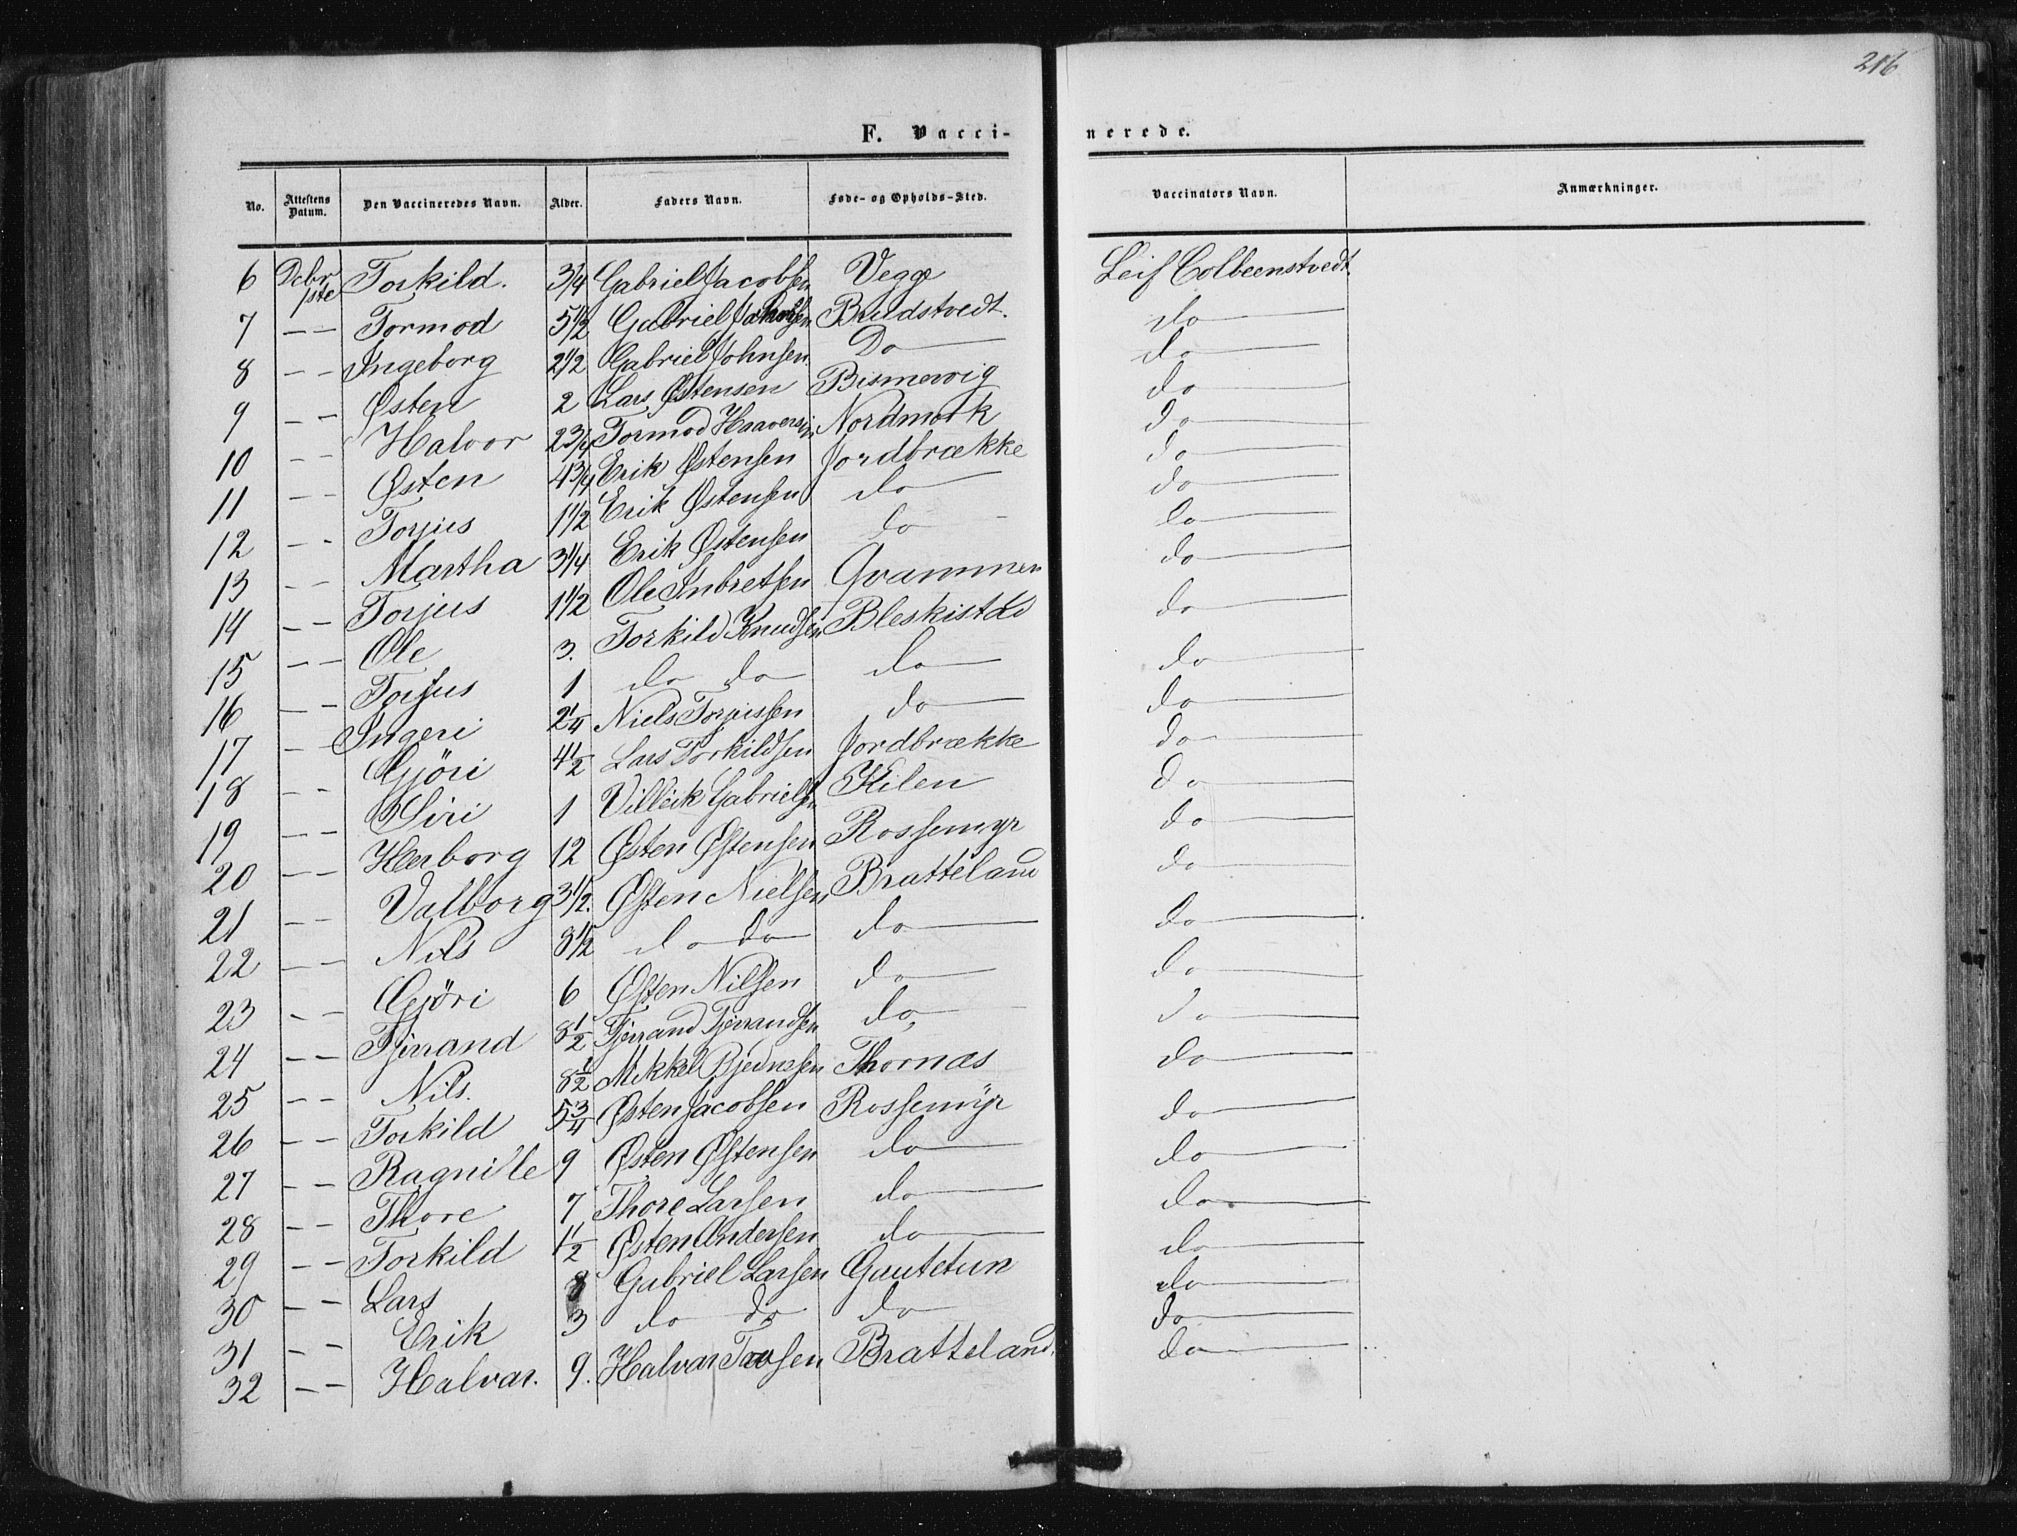 216
F. Vacci-nerede.
No. Attestens Datum. Den Vaccineredes Navn. Alder. Faders Navn. Føde- og Opholds-Sted. Vaccinators Navn. Anmærkninger.
6 Dcbr 1ste Torkild. 3/4 Gabriel Jacobsen Vegge Leif Colbeenstvedt
7 — — Tormod 5 1/2 Gabriel Brudstvedt. do
8 — — Ingeborg 2 1/2 Gabriel Johnsen. Do do
9 — — Østen 2 Lars Østensen Bismervig do
10 — — Halvor 2 3/4 Tormod Haaversen Nordmork do
11 — — Østen 4 3/4 Erik Østensen Jordbrække do
12 — — Torjus 1 1/2 Erik Østensen do do
13 — — Martha 3 1/4 Erik Østensen do do
14 — — Torjus 1 1/2 Ole Inbretsen Qvammen do
15 — — Ole 3. Torkild Knudsen Bleskistad do
16 — — Torjus 1 do do do do
17 — — Ingeri 2 1/4 Niels Torjussen do do
18 — — Gjöri 4 1/2 Lars Torkildsen Jordbrække do
19 — — Siri 1 Villeik Gabrielsen Hilen do
20 — — Herborg 12 Østen Østensen Rossemyr do
21 — — Valborg 3 1/2. Østen Nielsen Bratteland do
22 — — Nils 8 1/2 do do do do
23 — — Gjöri 6 Østen Nilsen do do
24 — — Tjerrand 8 1/2 Tjerrand Tjerrandsen do do
25 — — Nils. 8 1/2 Mikkel Bjednesen Thornæs do
26 — — Torkild 5 3/4 Østen Jacobsen Rossemÿr do
27 — — Ragnille 9 Østen Østensen do do
28 — — Thore 7 Thore Larsen do do
29 — — Torkild 1 1/2 Østen Andersen do do
30 — — Lars 8 Gabriel Larsen Gautetun do
31 — — Erik 3 do do do do
32 — — Halvar. 9. Halvar Bratteland. do